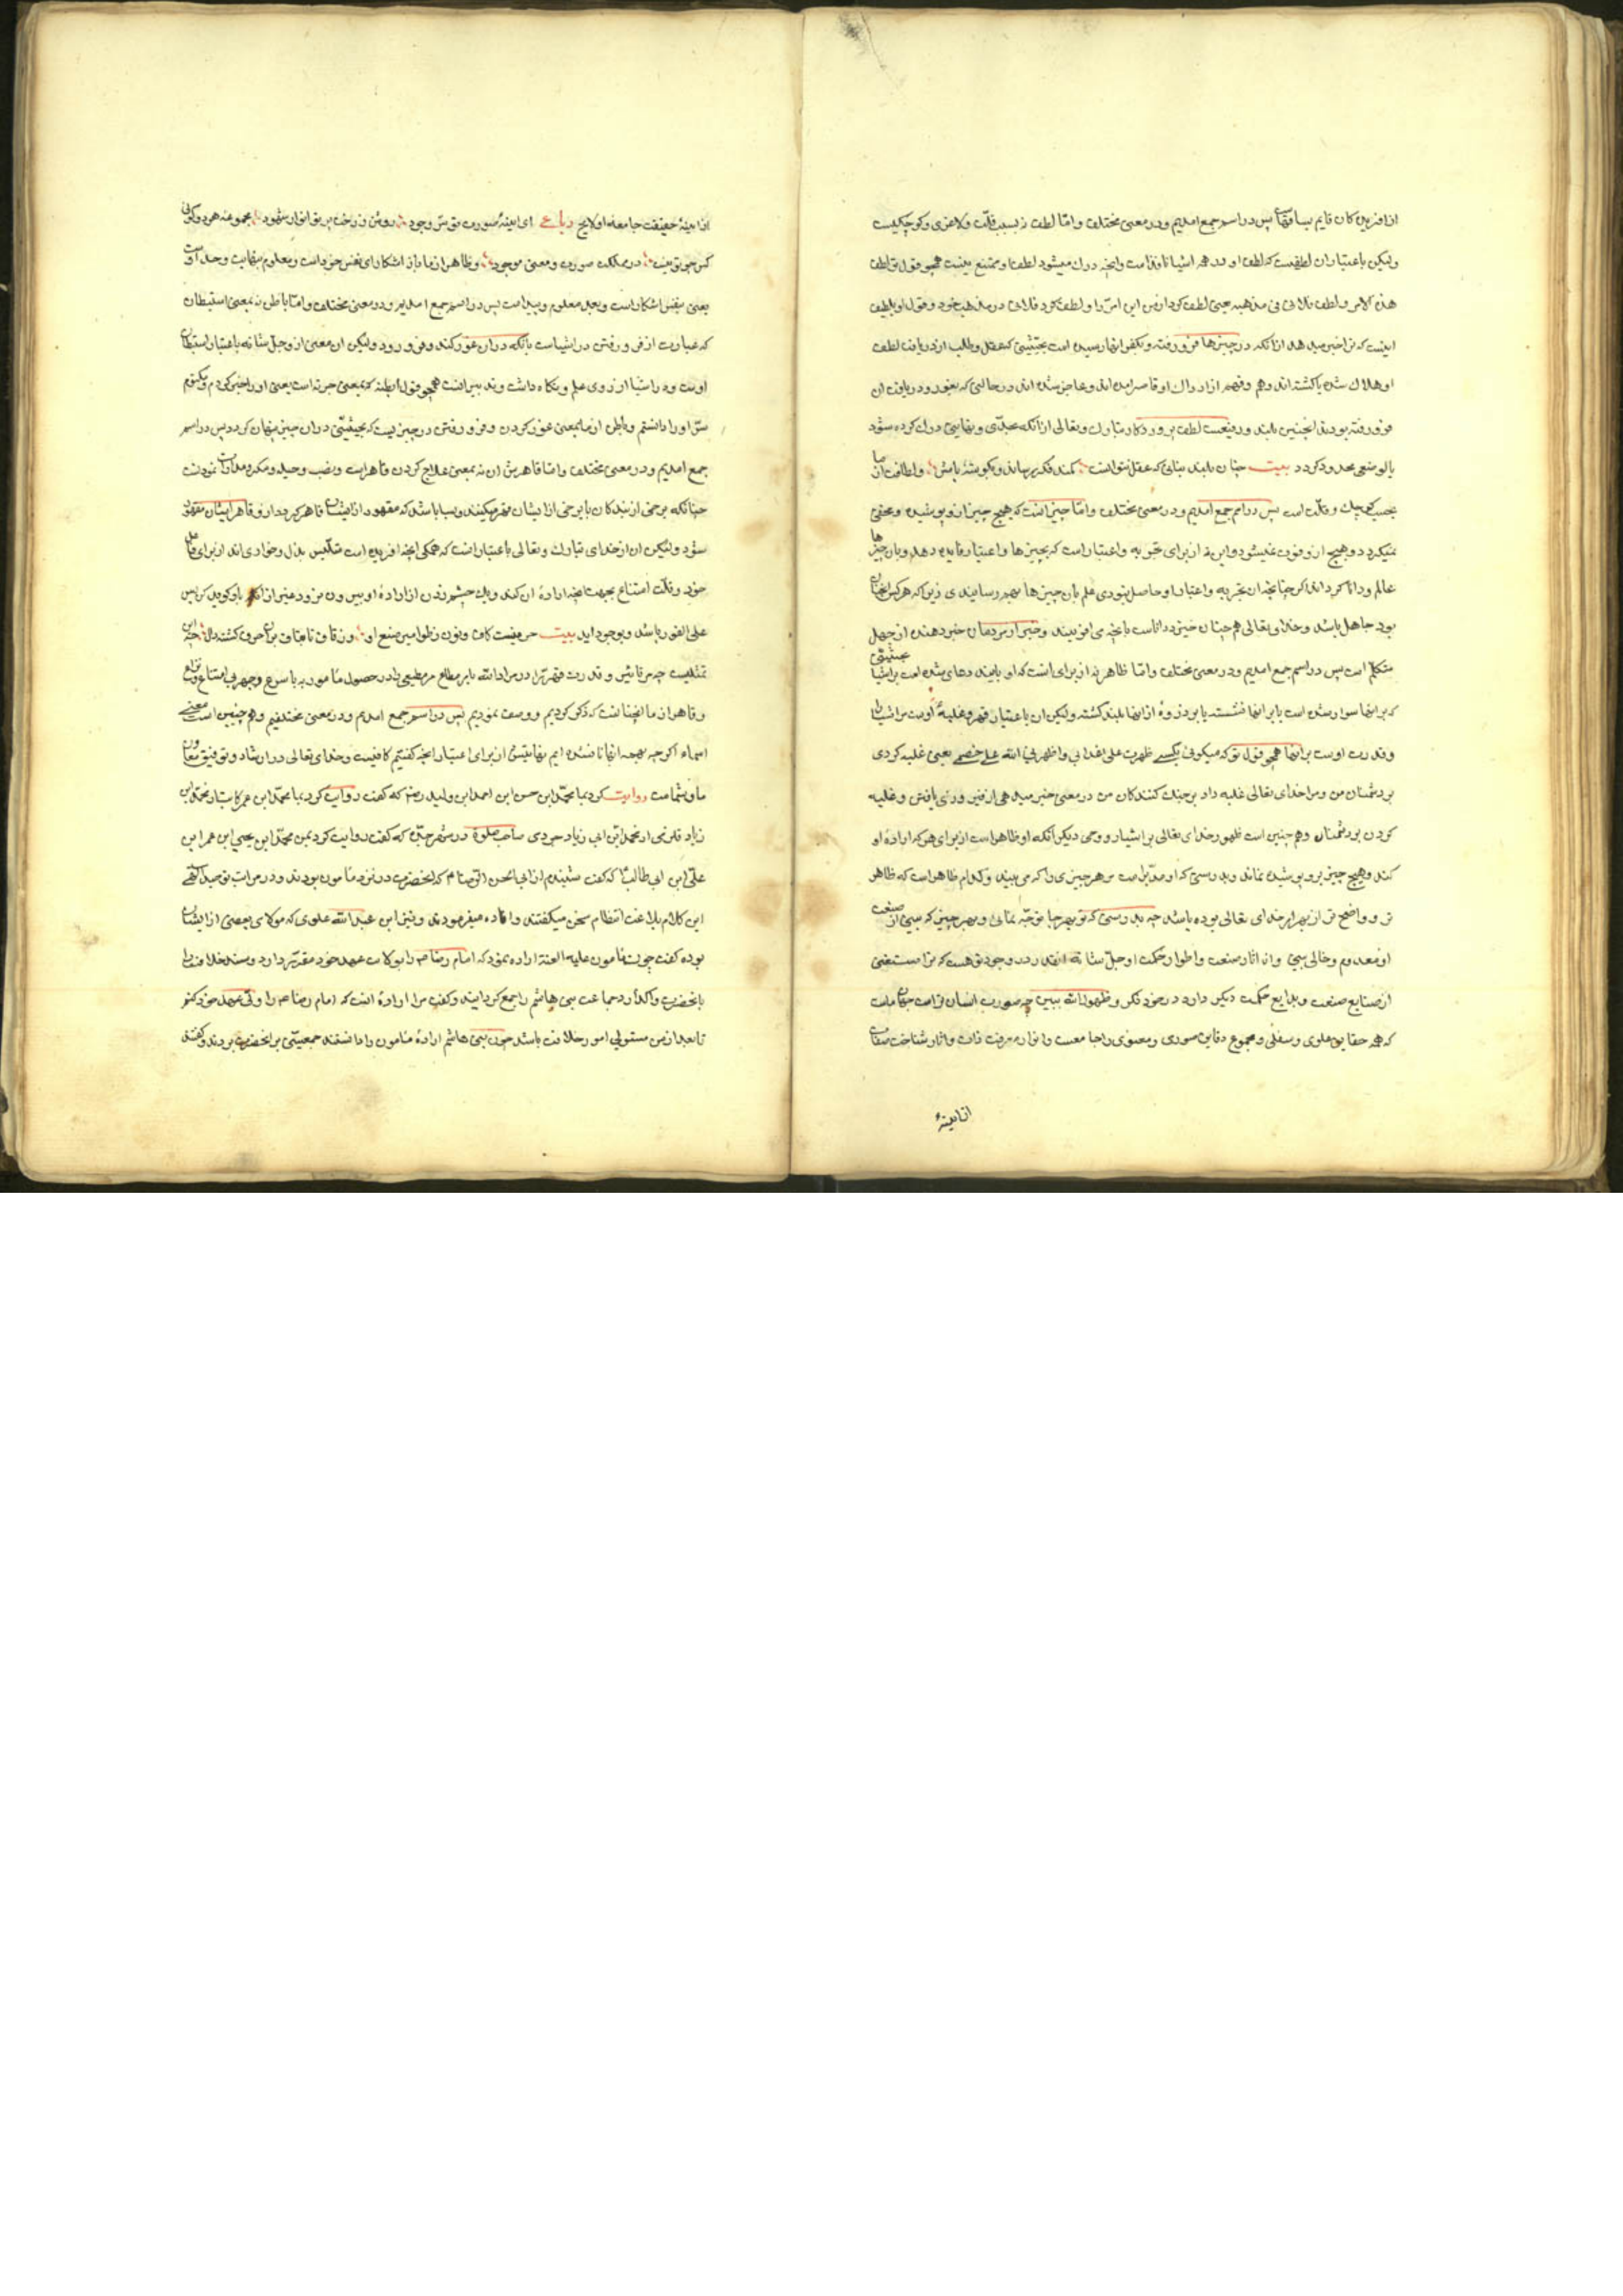 از آفریدن کان قایم بساقها پس در اسم جمع آمدیم و در معنی مختلف و امّا لطف نه بسبب قلّت و لاغری و کوچکیست
ولیکن باعتبار آن لطفیست که لطف او در همه اشیا نافذ است و آنچه درک میشود لطف او ممتنع نیست همچو قول تو لطف
هذا الامر و لطف فلانی فی مذهبه یعنی لطف کرد از من این امر را و لطف کرد فلانی در مذهب خود و قول او بلطف
اینست که ترا خبر میدهد از آنکه در چیزها فرو رفته و بکنه آنها رسیده است بحیثیتی که عقل و طلب از دریافت لطف
او هلاک شده یا گشته‌اند وهم و فهم از ادراک او قاصر آمده‌اند و عاجز شده‌اند در حالتی که بغور و دریافت آن
فرو رفته بودند همچنین بلند و رفیعست لطف پروردگار تبارک و تعالی از آنکه بحدّی و نهایتی درک کرده شود
یا بوضعی محدود گردد بیت چنان بلند بنائی که عقل نتوانست کمند فکر رساند بگوشهٔ بامش و لطافت از ما
بحسب کوچک و قلّت است پس در اسم جمع آمدیم و در معنی مختلف و امّا خبیر آنست که هیچ چیز ازو پوشیده و مخفی
نمیگردد و هیچ ازو فوت نمیشود و این نه از برای تجربه و اعتبار است که بچیزها و اعتبار فایده دهد و بآن چیزها
عالم و دانا گرداند اگر چنانچه آن تجربه و اعتبار او حاصل نبودی علم بآن چیزها بهم رسانیدی زیرا که هر کس آنچنان
بود جاهل باشد و خدای تعالی همچنان خبیر و داناست بآنچه می‌آفریند و خبیر از مردمان خبر دهنده از جهل
متکلم است پس در اسم جمع آمدیم و در معنی مختلف و امّا ظاهر نه از برای آنست که او بآیند و های شده است بر اشیا بحیثیتی
که بر آنها سوار شده است یا بر آنها نشسته یا بر ذروهٔ از آنها بلند گشته ولیکن آن باعتبار قهر و غلبهٔ اوست مر اشیا را
و قدرت اوست بر آنها همچو قول تو که میگوئی بکسی ظهرت علی اعدائی و اظهرنی الله علی خصمی یعنی غلبه کردی
بر دشمنان من و مرا خدای تعالی غلبه داد بر جنگ کنندگان من در معنی خبر میدهی از فیروزی یافتن و غلبه
کردن بر دشمنان و همچنین است ظهور خدای تعالی بر اشیا و وجهی دیگر آنکه او ظاهر است از برای هر که ارادهٔ او
کند و هیچ چیز برو پوشیده نماند و بدرستی که او مدبّر است مر هر چیزی را که می‌بیند و کدام ظاهر است که ظاهر
تر و واضح‌تر از بهر از خدای تعالی بوده باشد چه بدرستی که تو بهر جا توجّه نمائی و بهر چیز که ببینی از صنعت
او معدوم و خالی ببینی و از آثار صنعت و اطوار حکمت او جلّ شانه آنقدر در وجود تو هست که ترا مستغنی
از صنایع صنعت و بدایع حکمت دیگر دارد در خود نگر و ظهور الله ببین چه صورت انسان ترا است
که همه حقایق علوی و سفلی و مجموع دقایق صوری و معنوی را جامعست و انوار معرفت ذات و آثار شناخت صفات
از آیینهٔ
از آیینهٔ حقیقت جامعهٔ او لایح رباعی ای آینهٔ صورت تو سرّ وجود روشن ز رخت پرتو انوار شهود مجموعهٔ هر دو کونی
کس چو تو نیست در مملکت صورت و معنی موجود و ظاهر از ما باز آشکارای نفس خود است و معلوم نهایت و حدّ اوست
یعنی بنفس آشکار است و بحد معلوم و پیدا است پس در اسم جمع آمدیم و در معنی مختلف و امّا باطن نه بمعنی استبطان
که عبارت از فرو رفتن در اشیا است بآنکه در آن غور کند و فرو رود ولیکن آن معنی ازو جلّ شانه باعتبار استبطان
اوست در اشیا از روی علم و نگاه داشت و تدبیر آنست همچو قول ابطنته که بمعنی خبرته است یعنی او را خبر کردم و مکتوم
سرّ او را دانستم و باطن از ما بمعنی غور کردن و فرو رفتن در چیزیست که بحیثیتی در آن چیز پنهان گردد پس در اسم
جمع آمدیم و در معنی مختلف و امّا قاهر پس آن نه بمعنی علاج کردن قاهر است و نصب و حیله و مکر و مدارات نمودن
چنانکه برخی از بندگان با برخی از ایشان قهر میکنند و بسا باشد که مقهور از ایشان قاهر گردد و قاهر ایشان مقهور
شود ولیکن آن از خدای تبارک و تعالی باعتبار آنست که همگی آنچه آفریده است متلبّس بذل و خواری‌اند از برای فاعل
خود و قلّت امتناع بجهت آنچه ارادهٔ آن کند و یک چشم زدن از ارادهٔ او بیرون نرود غیر از آنکه باو گوید کن پس
علی الفور باشد و بوجود آید بیت حرفیست کاف و نون ز طوامیر صنع او وز قاف تا بقاف بر آن حرف گشته دال چه این
تمثلیست چه سرّ تاثیر و قدرت قهر ترا در مراد الله بامر مطاع مر مطیعی را در حصول مامور به باسرع وجهی بی امتناع
و قاهر از ما آنچنانست که ذکر کردیم و وصف نمودیم پس در اسم جمع آمدیم و در معنی مختلفیم و همچنین است معنی
اسماء اگرچه بهمه آنها نامیده‌ایم بغایتش از برای اعتبار آنچه گفتیم کافیست و خدای تعالی در ارشاد و توفیق معاون
ما و شماست روایت کرد بما محمّد ابن حسن ابن احمد ابن ولید رضه که گفت روایت کرد بما محمّد ابن عمر کاتب از محمّد ابن
زیاد قلزمی از محمّد ابن ابی زیاد جردی صاحب صلوة در شهر جدّه که گفت روایت کرد بمن محمّد ابن یحیی ابن عمر ابن
علی ابن ابی طالب که گفت شنیدم از ابی الحسن الرضا م که آنحضرت در نزد مامون بودند و در مراتب توحید الهی
این کلام بلاغت انتظام سخن میگفتند و افاده میفرمودند و نیز ابن عبد الله علوی که مولای بعضی از ایشان
بوده گفت چون مامون علیه اللعنة اراده نمود که امام رضا ص را بولایت عهد خود مقرّر دارد و مسند خلافت را
بآنحضرت واگذارد جماعت بنی هاشم را جمع گردانید و گفت مرا ارادهٔ آنست که امام رضا ص را ولی عهد خود کنم
تا بعد از من مستولی امور خلافت باشد چون بنی هاشم ارادهٔ مامون را دانستند جمعیتی بر آنحضرت بردند و گفتند